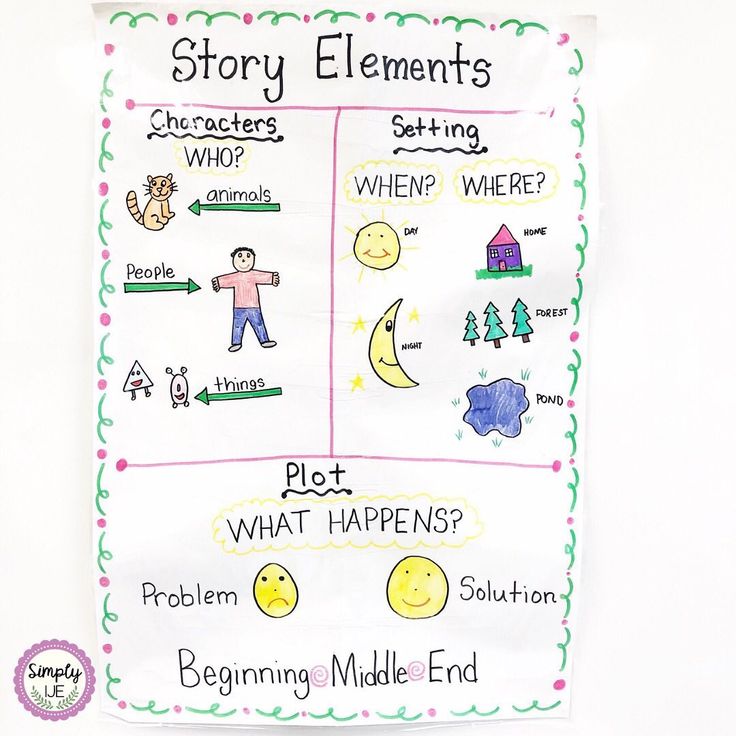 Story Elements
Characters
WHO?
animals
People
things
Setting
WHEN? WHERE?
DAY
HOME
NIGHT
FOREST
POND
Plot
WHAT HAPPENS?
Problem
Solution
Beginning Middle End
Simply
IJE